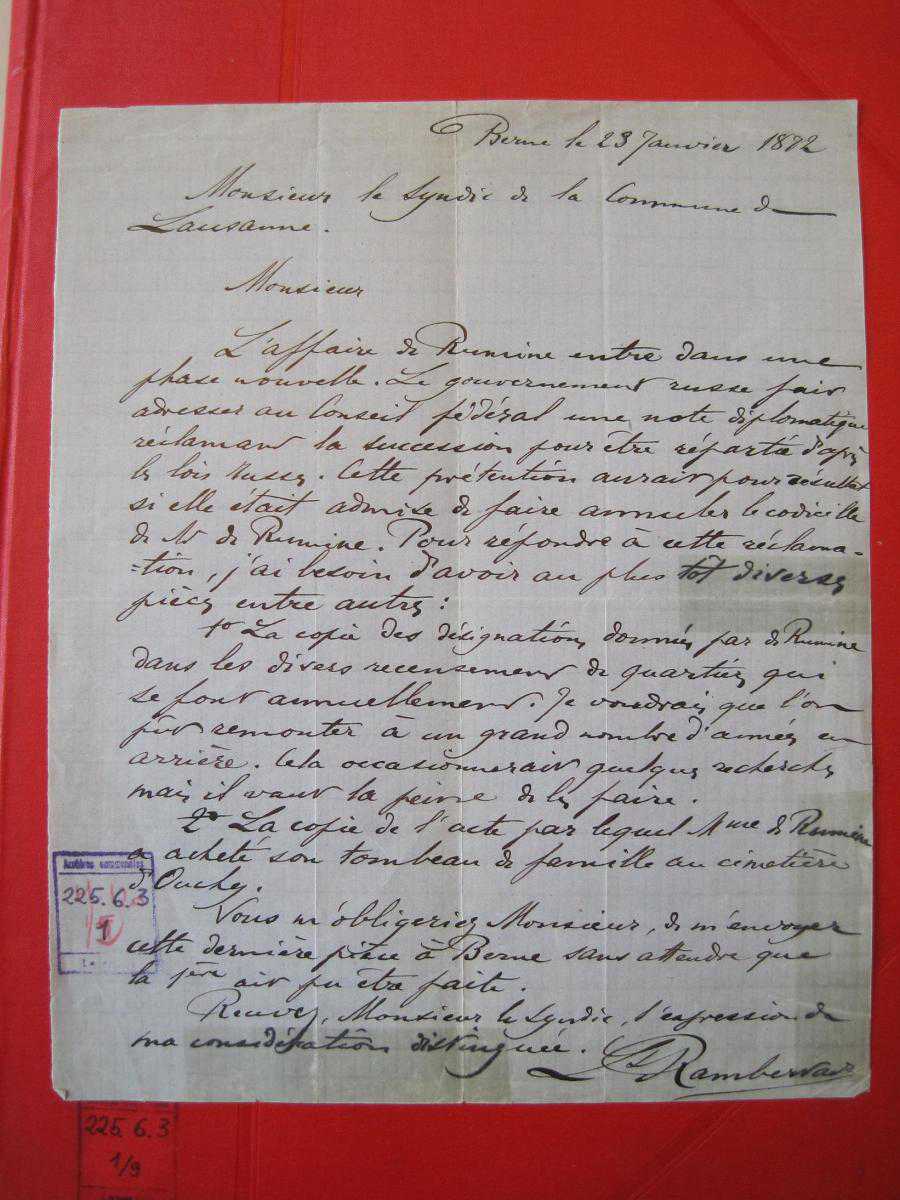 Berne le 23 Janvier 1872
Monsieur le Syndic de la Commune de
Lausanne.
Monsieur
L'affaire de Rumine entre dans une
phase nouvelle. Le gouvernement russe fait
adresser au Conseil fédéral une note diplomatique
réclamant la succession pour être répartie d'après
les lois russes. Cette prétention aurait pour résultat
si elle était admise de faire annuler le codicille
de Mr de Rumine. Pour répondre à cette réclama-
=tion, j'ai besoin d'avoir au plus tôt diverses
pièces entre autres :
1o La copie des désignations données par de Rumine
dans les divers recensements de quartiers qui
se font annuellement. Je voudrais que l'on
pût remonter à un grand nombre d'années en
arrière. Cela occasionnerait quelques recherches
mais il vaut la peine de les faire.
2o La copie de l'acte par lequel Mme de Rumine
a acheté son tombeau de famille au cimetière
d'Ouchy.
Vous m'obligeriez Monsieur, de m'envoyer
cette dernière pièce à Berne sans attendre que
la 1ère ait pu être faite.
Recevez, Monsieur le Syndic, l'expression de
ma considération distinguée.
Ls Rambert
Archives communales
225.6.3
1
225.6.3
1/9